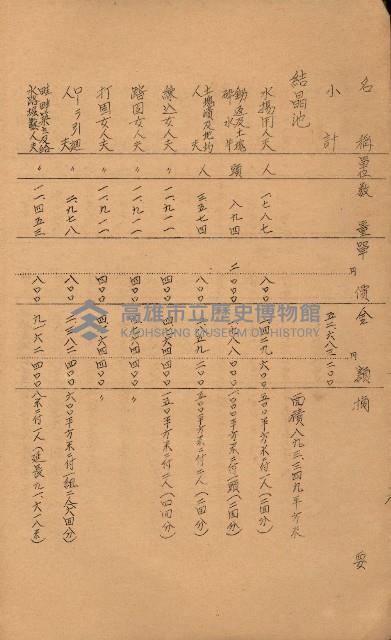 名稱 單位 數量 單價 金額 摘要
小計 五二六八三二〇〇
結晶池 面積八九三三四九平方米
水揚用人夫 人 一七八七 八〇〇 一四二九六〇〇 五〇〇平方米ニ付一人(二回分)
鋤返及土塊碎水牛 頭 八九四
土塊潰及地均人夫 人 三五七四 八〇〇 五〇〇平方米ニ付二人(二回分)
練込女人夫 〃 四〇〇 一五〇平方米ニ付二人(四回分)
踏固女人夫 〃 一一九一一 四〇〇 四七六四四〇〇 〃
打固女人夫 〃 一一九一一 四〇〇 四七六四四〇〇 〃
ローラ引廻人夫 〃 二九七八 八〇〇 二三八二四〇〇 六〇〇平方米ニ付一組二人(六回分)
畦畔築立及給水路堀鑿人夫 〃 一一四五三 八〇〇 九一六二四〇〇 八米ニ付一人(延長九一六一八米)
高雄市立歷史博物館
KAOHSIUNG MUSEUM OF HISTORY